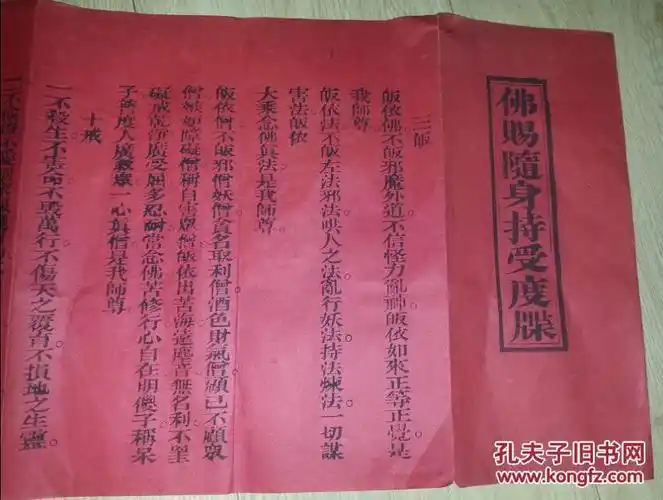 佛賜隨身持受度牒
三皈
皈依佛不皈邪魔外道不信怪力亂神皈依如來正等正覺是
我師尊
皈依法不皈左法邪法哄人之法亂行妖法持法煉法一切謀
害法皈依
大乘念佛真法是我師尊
皈依僧不皈邪僧妖僧貪名取利僧酒色財氣僧顧己不顧眾
僧嫉妒障礙僧稱自害眾僧皈依出苦海達塵音無名利不罣
礙戒乾淨廣受屈多忍耐當念佛苦修行心自在明傻子稱呆
子普度人廣發眾一心真僧是我師尊
十戒
一不殺生不害命不異萬行不傷天之覆育不損地之生靈
孔夫子旧书网
www.kongfz.com